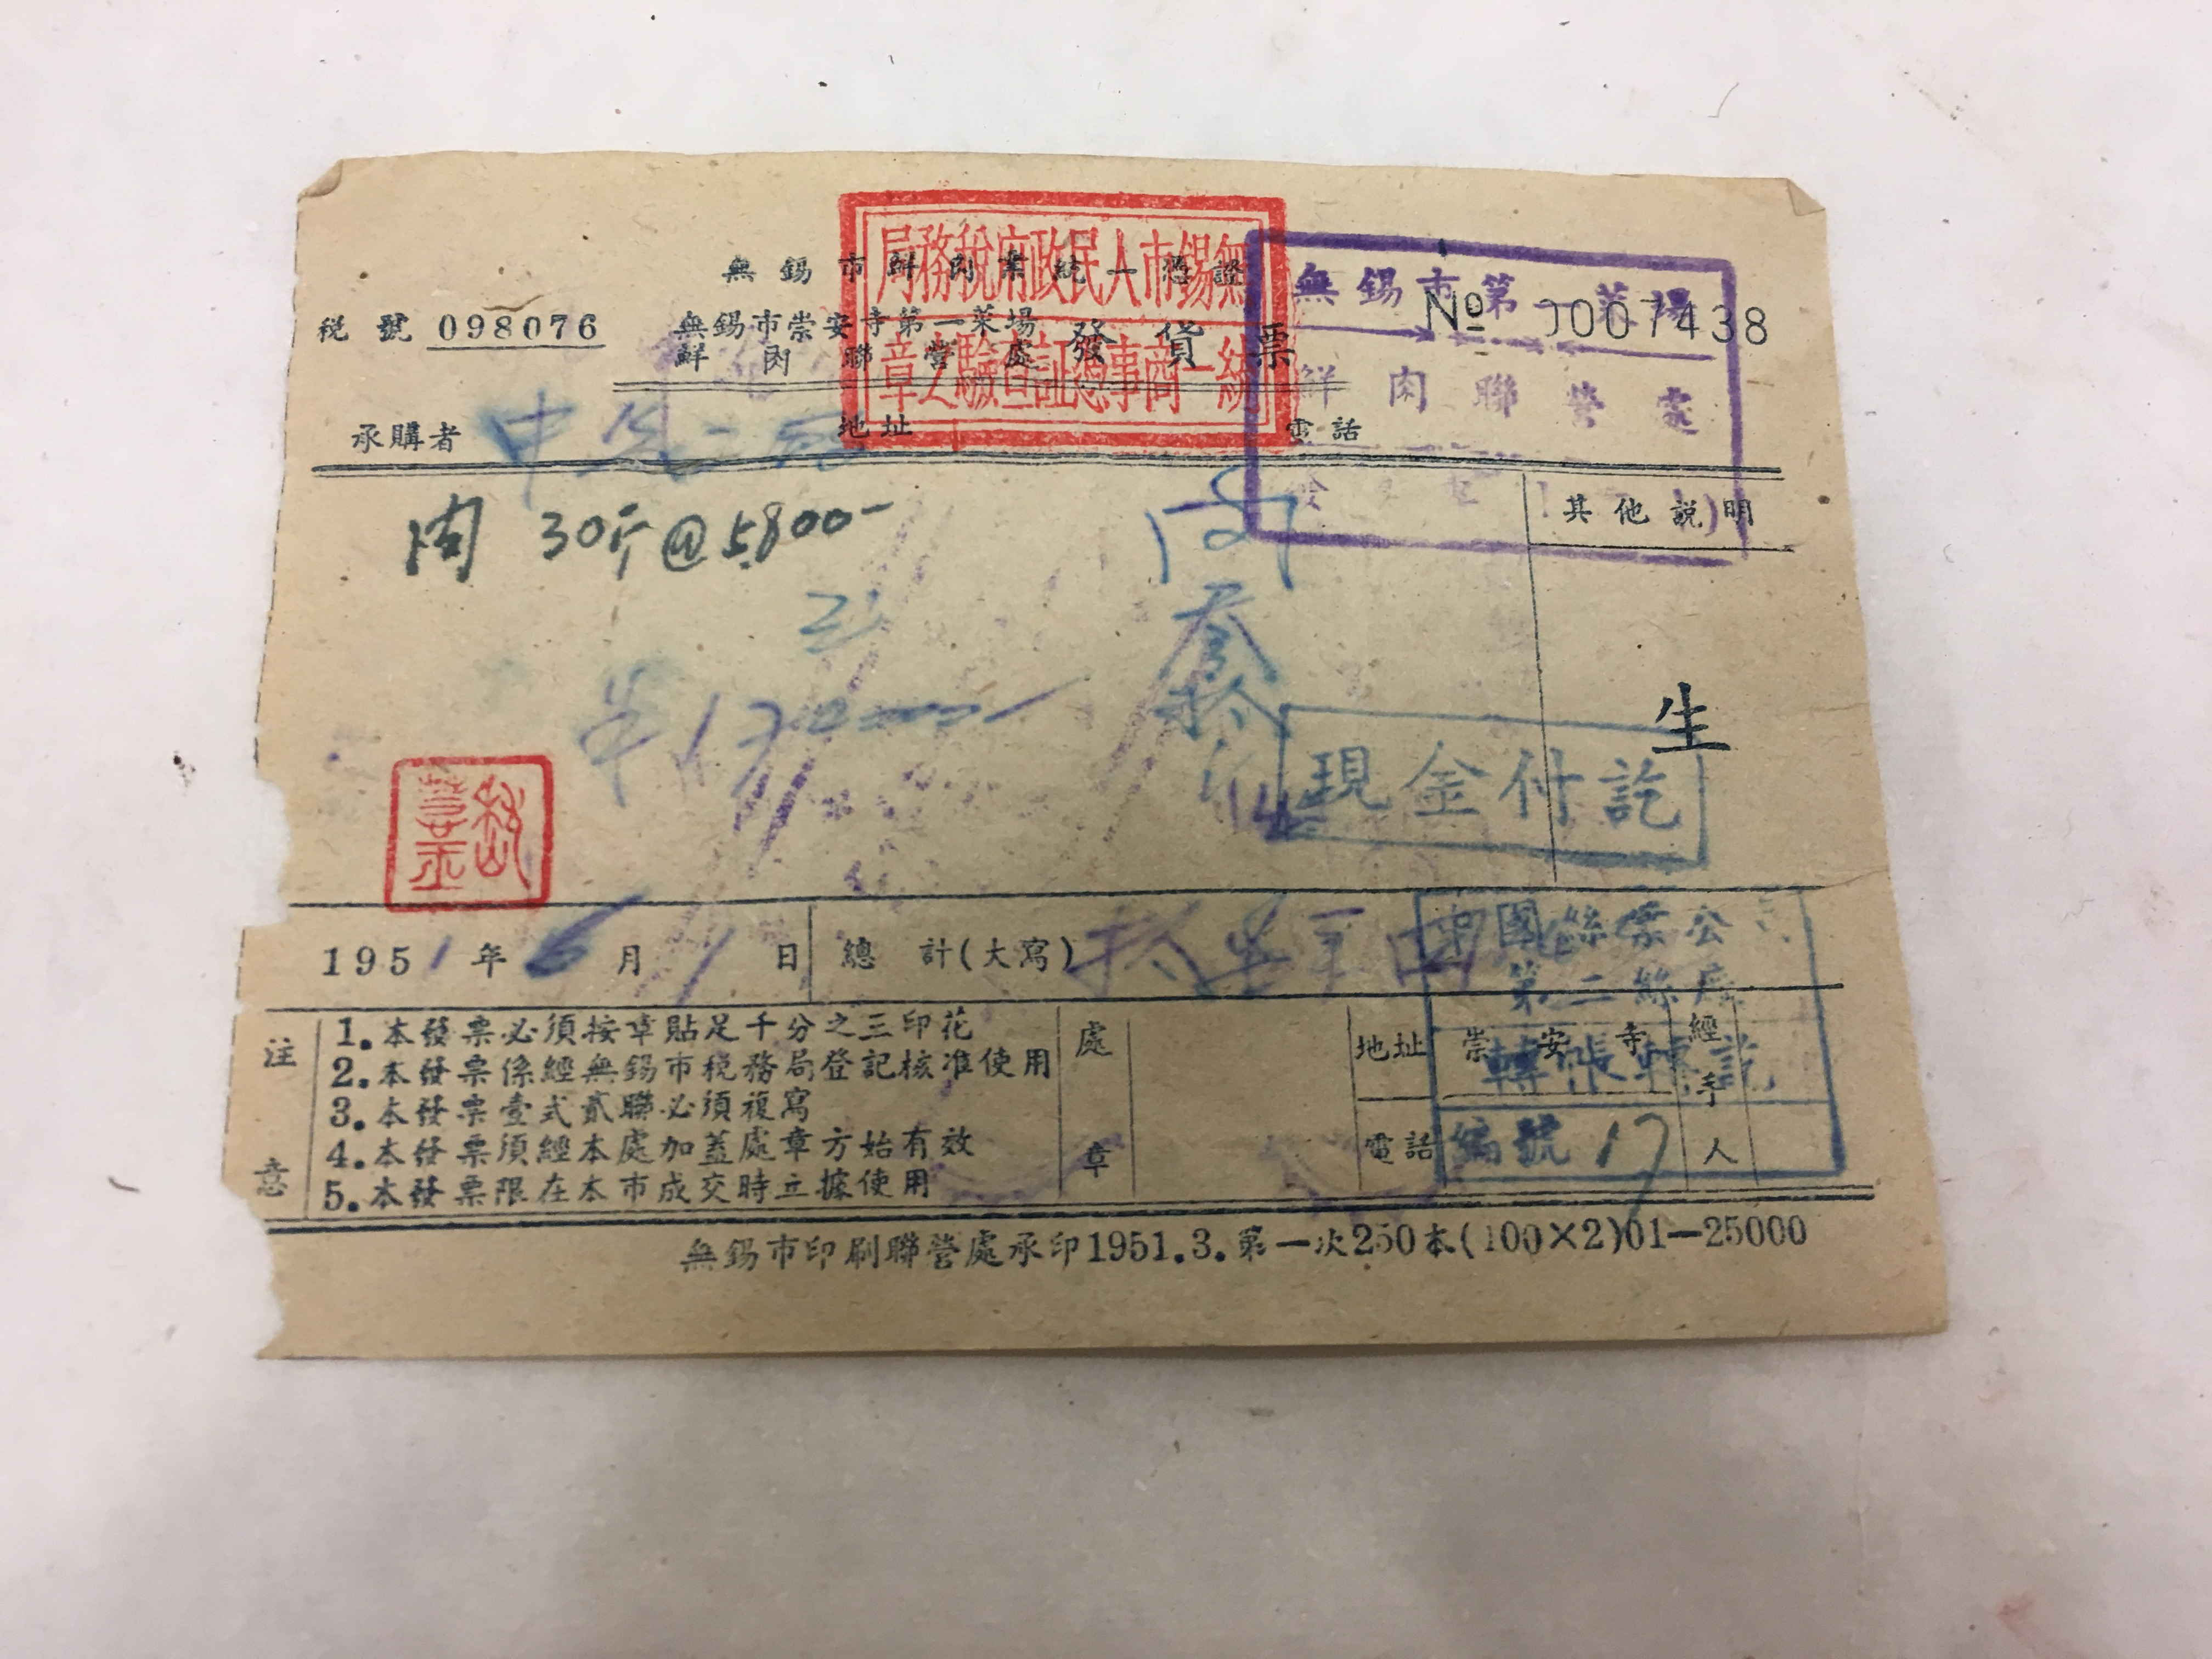 無錫市鮮肉業統一憑證
無錫市人民政府稅務局
統一商事憑証查驗之章
稅號 098076
無錫市崇安寺第一菜場
鮮肉聯營處
發貨票
№ 0007438
無錫市第一菜場
鮮肉聯營處
承購者
地址
電話
肉 30斤@5800-
其他說明
生
現金付訖
1951年6月1日
總計(大寫)
中國絲業公司
第二絲廠
轉帳轉訖
編號 17
注意
1.本發票必須按章貼足千分之三印花
2.本發票係經無錫市稅務局登記核准使用
3.本發票壹式貳聯必須複寫
4.本發票須經本處加蓋處章方始有效
5.本發票限在本市成交時立據使用
處章
地址 崇安寺
電話
經手人
無錫市印刷聯營處承印1951.3.第一次250本(100×2)01—25000